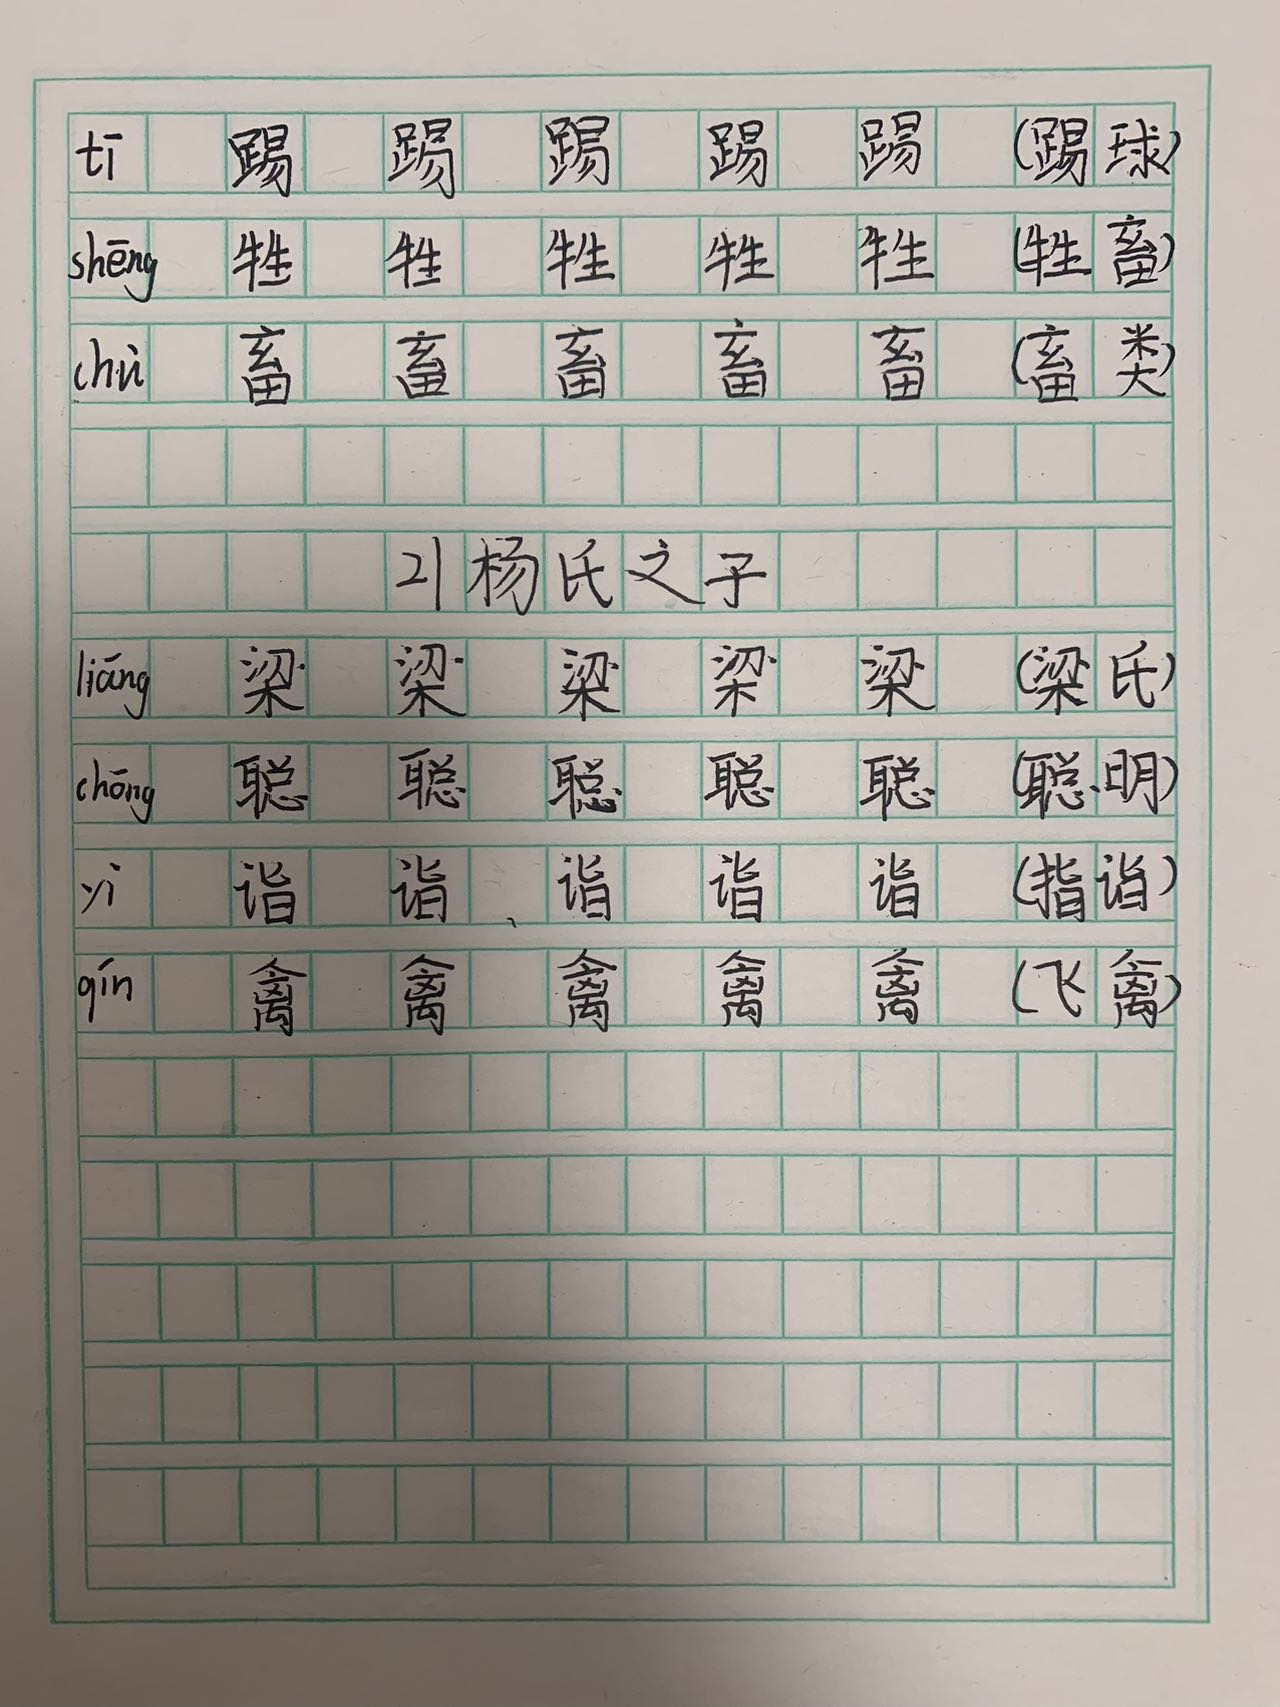 tī 踢 踢 踢 踢 踢 (踢球)
shēng 牲 牲 牲 牲 牲 (牲畜)
chù 畜 畜 畜 畜 畜 (畜类)
21 杨氏之子
liáng 梁 梁 梁 梁 梁 (梁氏)
chōng 聪 聪 聪 聪 聪 (聪明)
yì 诣 诣 诣 诣 诣 (指诣)
qín 禽 禽 禽 禽 禽 (飞禽)